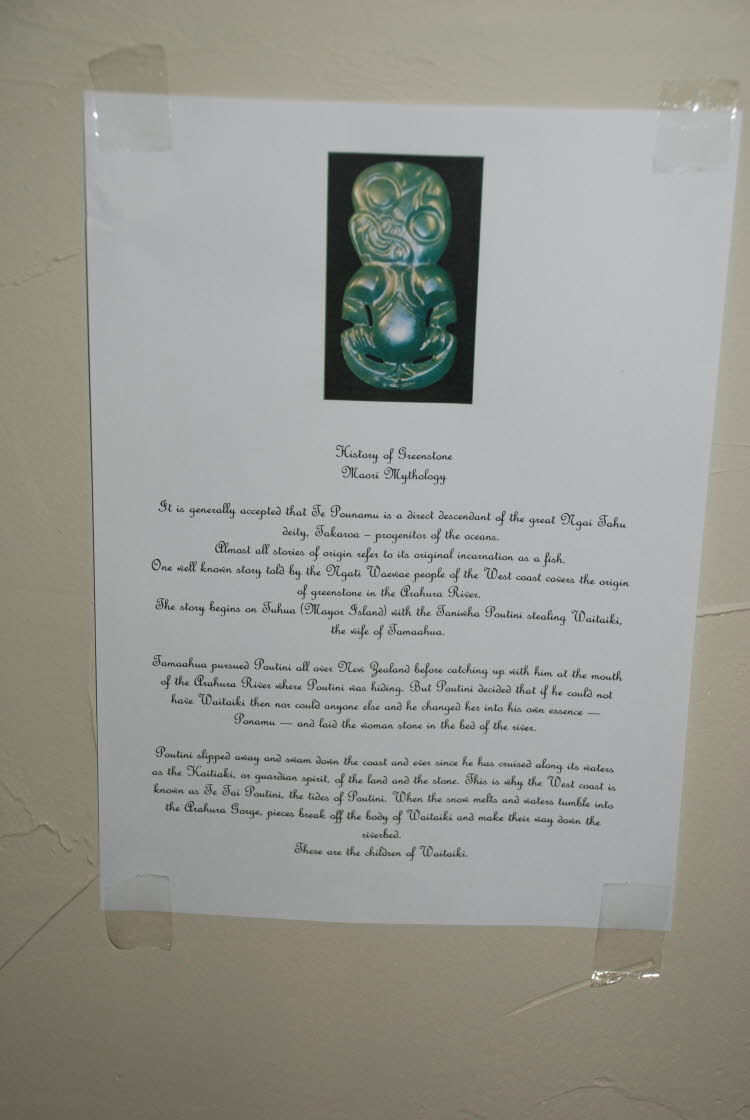 History of Greenstone
Maori Mythology
It is generally accepted that Te Pounamu is a direct descendant of the great Ngai Tahu
deity, Takaroa – progenitor of the oceans.
Almost all stories of origin refer to its original incarnation as a fish.
One well known story told by the Ngati Waewae people of the West coast covers the origin
of greenstone in the Arahura River.
The story begins on Tuhua (Mayor Island) with the Taniwha Poutini stealing Waitaiki,
the wife of Tamaahua.
Tamaahua pursued Poutini all over New Zealand before catching up with him at the mouth
of the Arahura River where Poutini was hiding. But Poutini decided that if he could not
have Waitaiki then nor could anyone else and he changed her into his own essence —
Ponamu — and laid the woman stone in the bed of the river.
Poutini slipped away and swam down the coast and ever since he has cruised along its waters
as the Kaitiaki, or guardian spirit, of the land and the stone. This is why the West coast is
known as Te Tai Poutini, the tides of Poutini. When the snow melts and waters tumble into
the Arahura Gorge, pieces break off the body of Waitaiki and make their way down the
riverbed.
These are the children of Waitaiki.